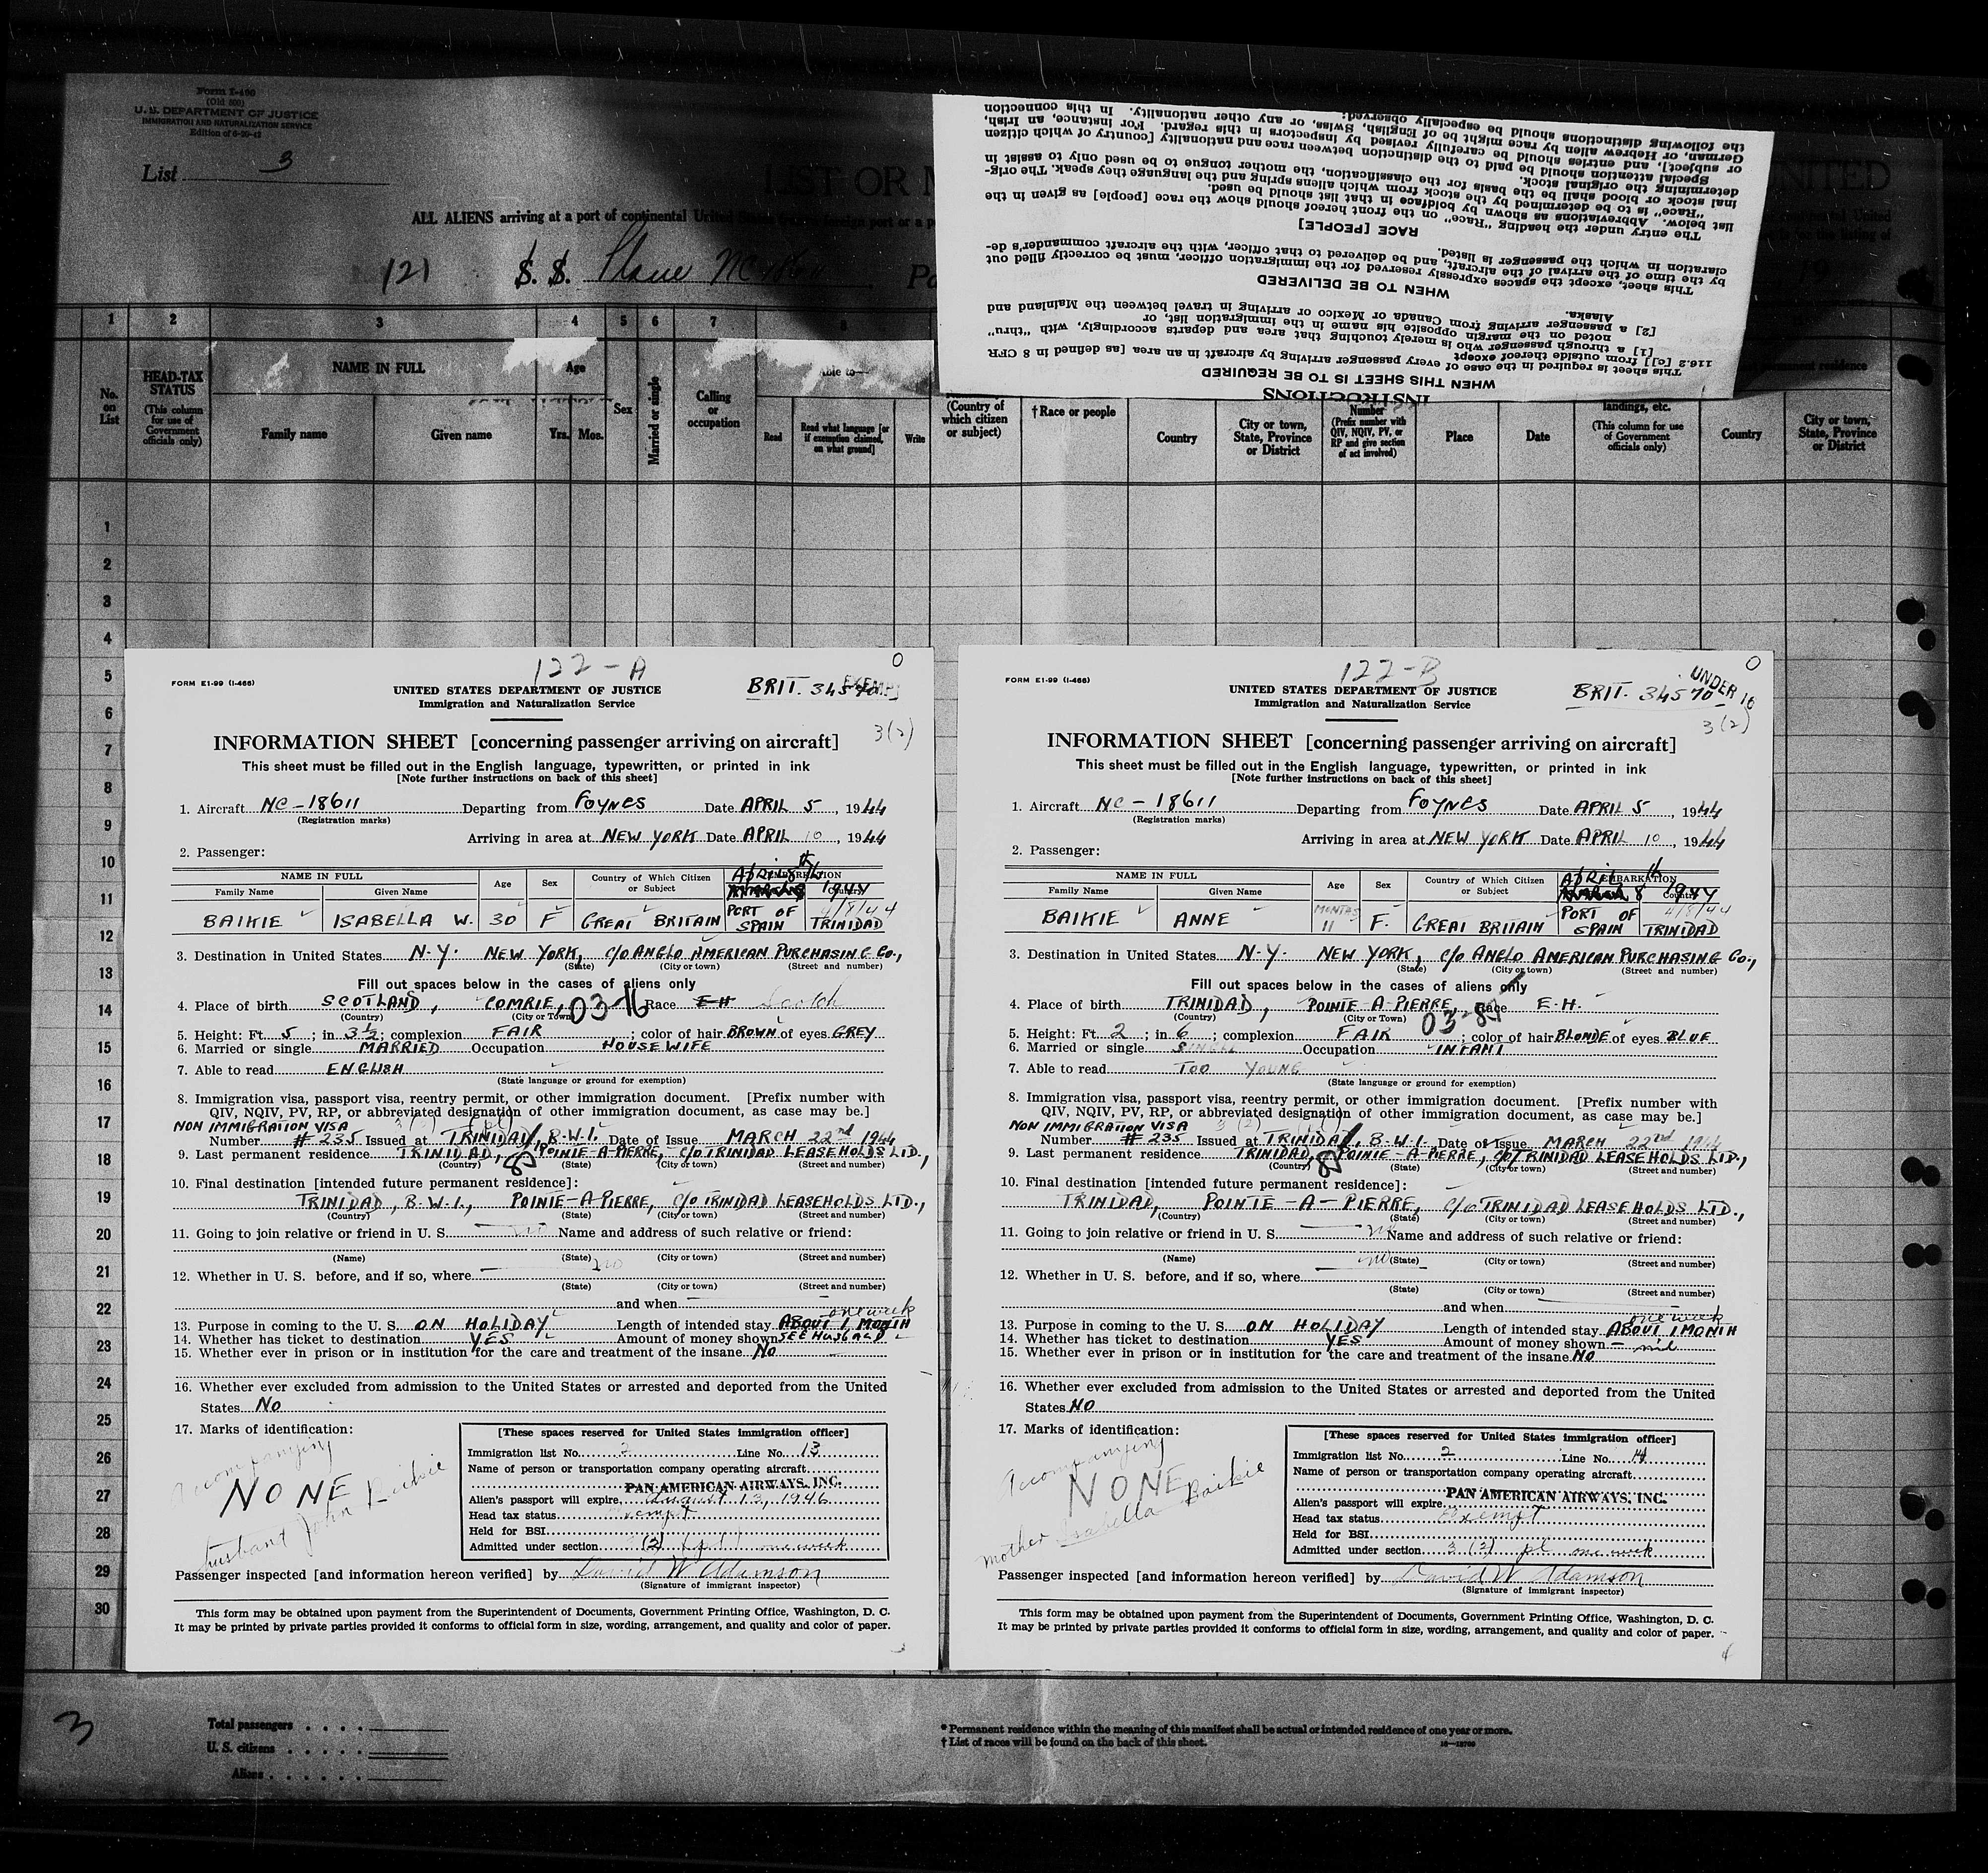 Form I-400
(Old 500)
U. S. DEPARTMENT OF JUSTICE
IMMIGRATION AND NATURALIZATION SERVICE
Edition of 6-20-42
List 3
ALL ALIENS arriving at a port of continental United
121 S. S. Plane
INSTRUCTIONS
WHEN THIS SHEET IS TO BE REQUIRED
This sheet is required in the case of every passenger arriving by aircraft in an area [as defined in 8 CFR
116.2 [c]] from outside thereof except
[1] a through passenger who is merely touching that area and departs accordingly, with "thru"
noted on the margin opposite his name in the immigration list, or
[2] a passenger arriving from Canada or Mexico or arriving in travel between the Mainland and
Alaska.
WHEN TO BE DELIVERED
This sheet, except the spaces expressly reserved for the immigration officer, must be correctly filled out
by the time of the arrival of the aircraft, and be delivered to that officer, with the aircraft commander's de-
claration in which the passenger is listed.
RACE [PEOPLE]
The entry under the heading "Race" on the front hereof should show the race [people] as given in the
list below. Abbreviations as shown by boldface in that list should be used.
"Race" is to be determined by the stock from which aliens spring and the language they speak. The orig-
inal stock or blood shall be the basis for the classification, the mother tongue to be used only to assist in
determining the original stock.
Special attention should be paid to the distinction between race and nationality [country of which citizen
or subject], and entries should be carefully revised by inspectors in this regard. For instance, an Irish,
German, or Hebrew alien by race might be of English, Swiss, or any other nationality. In this connection
the following distinctions should be especially observed:
1 2 3 4 5 6 7 8
No. on List
HEAD-TAX STATUS
(This column for use of Government officials only)
NAME IN FULL
Family name Given name
Age
Yrs. Mos.
Sex
Married or single
Calling or occupation
Able to—
Read Read what language [or if exemption claimed, on what ground] Write
(Country of which citizen or subject)
†Race or people
Country City or town, State, Province or District
Number (Prefix number with QIV, NQIV, PV, or RP and give section of act involved)
Place Date
landings, etc. (This column for use of Government officials only)
permanent residence
Country City or town, State, Province or District
1
2
3
4
5
6
7
8
9
10
11
12
13
14
15
16
17
18
19
20
21
22
23
24
25
26
27
28
29
30
122-A 0
FORM E1-99 (I-466)
UNITED STATES DEPARTMENT OF JUSTICE BRIT. 34570 EXEMPT
Immigration and Naturalization Service
3(2)
INFORMATION SHEET [concerning passenger arriving on aircraft]
This sheet must be filled out in the English language, typewritten, or printed in ink
[Note further instructions on back of this sheet]
1. Aircraft NC-18611 Departing from FOYNES Date APRIL 5, 1944
(Registration marks)
Arriving in area at NEW YORK Date APRIL 10, 1944
2. Passenger:
NAME IN FULL Age Sex Country of Which Citizen or Subject EMBARKATION
April 8th 1944
Family Name Given Name Country
4/8/44
BAIKIE ISABELLA W. 30 F GREAT BRITAIN PORT OF SPAIN TRINIDAD
3. Destination in United States N.Y. NEW YORK, C/O ANGLO AMERICAN PURCHASING CO.,
(State) (City or town) (Street and number)
Fill out spaces below in the cases of aliens only
4. Place of birth SCOTLAND, COMRIE, 03-16 Race EH Scotch
(Country) (City or Town)
5. Height: Ft. 5; in 3½; complexion FAIR; color of hair BROWN of eyes GREY
6. Married or single MARRIED Occupation HOUSEWIFE
7. Able to read ENGLISH
(State language or ground for exemption)
8. Immigration visa, passport visa, reentry permit, or other immigration document. [Prefix number with
QIV, NQIV, PV, RP, or abbreviated designation of other immigration document, as case may be.]
NON IMMIGRATION VISA 3(2)
Number # 235 Issued at TRINIDAD, B.W.I. Date of Issue MARCH 22nd 1944
9. Last permanent residence TRINIDAD, POINTE-A-PIERRE, C/O TRINIDAD LEASEHOLDS LTD.,
(Country) (State) (City or town) (Street and number)
10. Final destination [intended future permanent residence]:
TRINIDAD, B.W.I., POINTE-A-PIERRE, C/O TRINIDAD LEASEHOLDS LTD.,
(Country) (State) (City or town) (Street and number)
11. Going to join relative or friend in U. S. no Name and address of such relative or friend:
(Name) (State) (City or town) (Street and number)
12. Whether in U. S. before, and if so, where no
(State) (City or town) (Street and number)
and when
one week
13. Purpose in coming to the U. S. ON HOLIDAY Length of intended stay ABOUT 1 MONTH
14. Whether has ticket to destination YES Amount of money shown SEE HUSBAND
15. Whether ever in prison or in institution for the care and treatment of the insane No
16. Whether ever excluded from admission to the United States or arrested and deported from the United
States No
17. Marks of identification:
Accompanying
NONE
husband John Baikie
[These spaces reserved for United States immigration officer]
Immigration list No. 2 Line No. 13
Name of person or transportation company operating aircraft
PAN AMERICAN AIRWAYS, INC.
Alien's passport will expire August 13, 1946
Head tax status exempt
Held for BSI
Admitted under section 3(2) one week
Passenger inspected [and information hereon verified] by David W Adamson
(Signature of immigrant inspector)
This form may be obtained upon payment from the Superintendent of Documents, Government Printing Office, Washington, D. C.
It may be printed by private parties provided it conforms to official form in size, wording, arrangement, and quality and color of paper.
122-B 0
FORM E1-99 (I-466)
UNITED STATES DEPARTMENT OF JUSTICE BRIT. 34570 UNDER 16
Immigration and Naturalization Service
3(2)
INFORMATION SHEET [concerning passenger arriving on aircraft]
This sheet must be filled out in the English language, typewritten, or printed in ink
[Note further instructions on back of this sheet]
1. Aircraft NC-18611 Departing from FOYNES Date APRIL 5, 1944
(Registration marks)
Arriving in area at NEW YORK Date APRIL 10, 1944
2. Passenger:
NAME IN FULL Age Sex Country of Which Citizen or Subject EMBARKATION
April 8th 1944
Family Name Given Name Country
4/8/44
BAIKIE ANNE MONTHS 11 F. GREAT BRITAIN PORT OF SPAIN TRINIDAD
3. Destination in United States N.Y. NEW YORK, C/O ANGLO AMERICAN PURCHASING CO.,
(State) (City or town) (Street and number)
Fill out spaces below in the cases of aliens only
4. Place of birth TRINIDAD, POINTE-A-PIERRE, Race E.H.
(Country) (City or Town) 03-85
5. Height: Ft. 2; in 6; complexion FAIR; color of hair BLONDE of eyes BLUE
6. Married or single SINGLE Occupation INFANT
7. Able to read TOO YOUNG
(State language or ground for exemption)
8. Immigration visa, passport visa, reentry permit, or other immigration document. [Prefix number with
QIV, NQIV, PV, RP, or abbreviated designation of other immigration document, as case may be.]
NON IMMIGRATION VISA 3(2)
Number # 235 Issued at TRINIDAD, B.W.I. Date of Issue MARCH 22nd 1944
9. Last permanent residence TRINIDAD, POINTE-A-PIERRE, C/O TRINIDAD LEASEHOLDS LTD.,
(Country) (State) (City or town) (Street and number)
10. Final destination [intended future permanent residence]:
TRINIDAD, POINTE-A-PIERRE, C/O TRINIDAD LEASEHOLDS LTD.,
(Country) (State) (City or town) (Street and number)
11. Going to join relative or friend in U. S. no Name and address of such relative or friend:
(Name) (State) (City or town) (Street and number)
12. Whether in U. S. before, and if so, where no
(State) (City or town) (Street and number)
and when
one week
13. Purpose in coming to the U. S. ON HOLIDAY Length of intended stay ABOUT 1 MONTH
14. Whether has ticket to destination YES Amount of money shown — nil
15. Whether ever in prison or in institution for the care and treatment of the insane NO
16. Whether ever excluded from admission to the United States or arrested and deported from the United
States NO
17. Marks of identification:
Accompanying
NONE
mother Isabella Baikie
[These spaces reserved for United States immigration officer]
Immigration list No. 2 Line No. 14
Name of person or transportation company operating aircraft
PAN AMERICAN AIRWAYS, INC.
Alien's passport will expire
Head tax status exempt
Held for BSI
Admitted under section 3(2) pl one week
Passenger inspected [and information hereon verified] by David W Adamson
(Signature of immigrant inspector)
This form may be obtained upon payment from the Superintendent of Documents, Government Printing Office, Washington, D. C.
It may be printed by private parties provided it conforms to official form in size, wording, arrangement, and quality and color of paper.
3
Total passengers
U. S. citizens
Aliens
* Permanent residence within the meaning of this manifest shall be actual or intended residence of one year or more.
† List of races will be found on the back of this sheet.